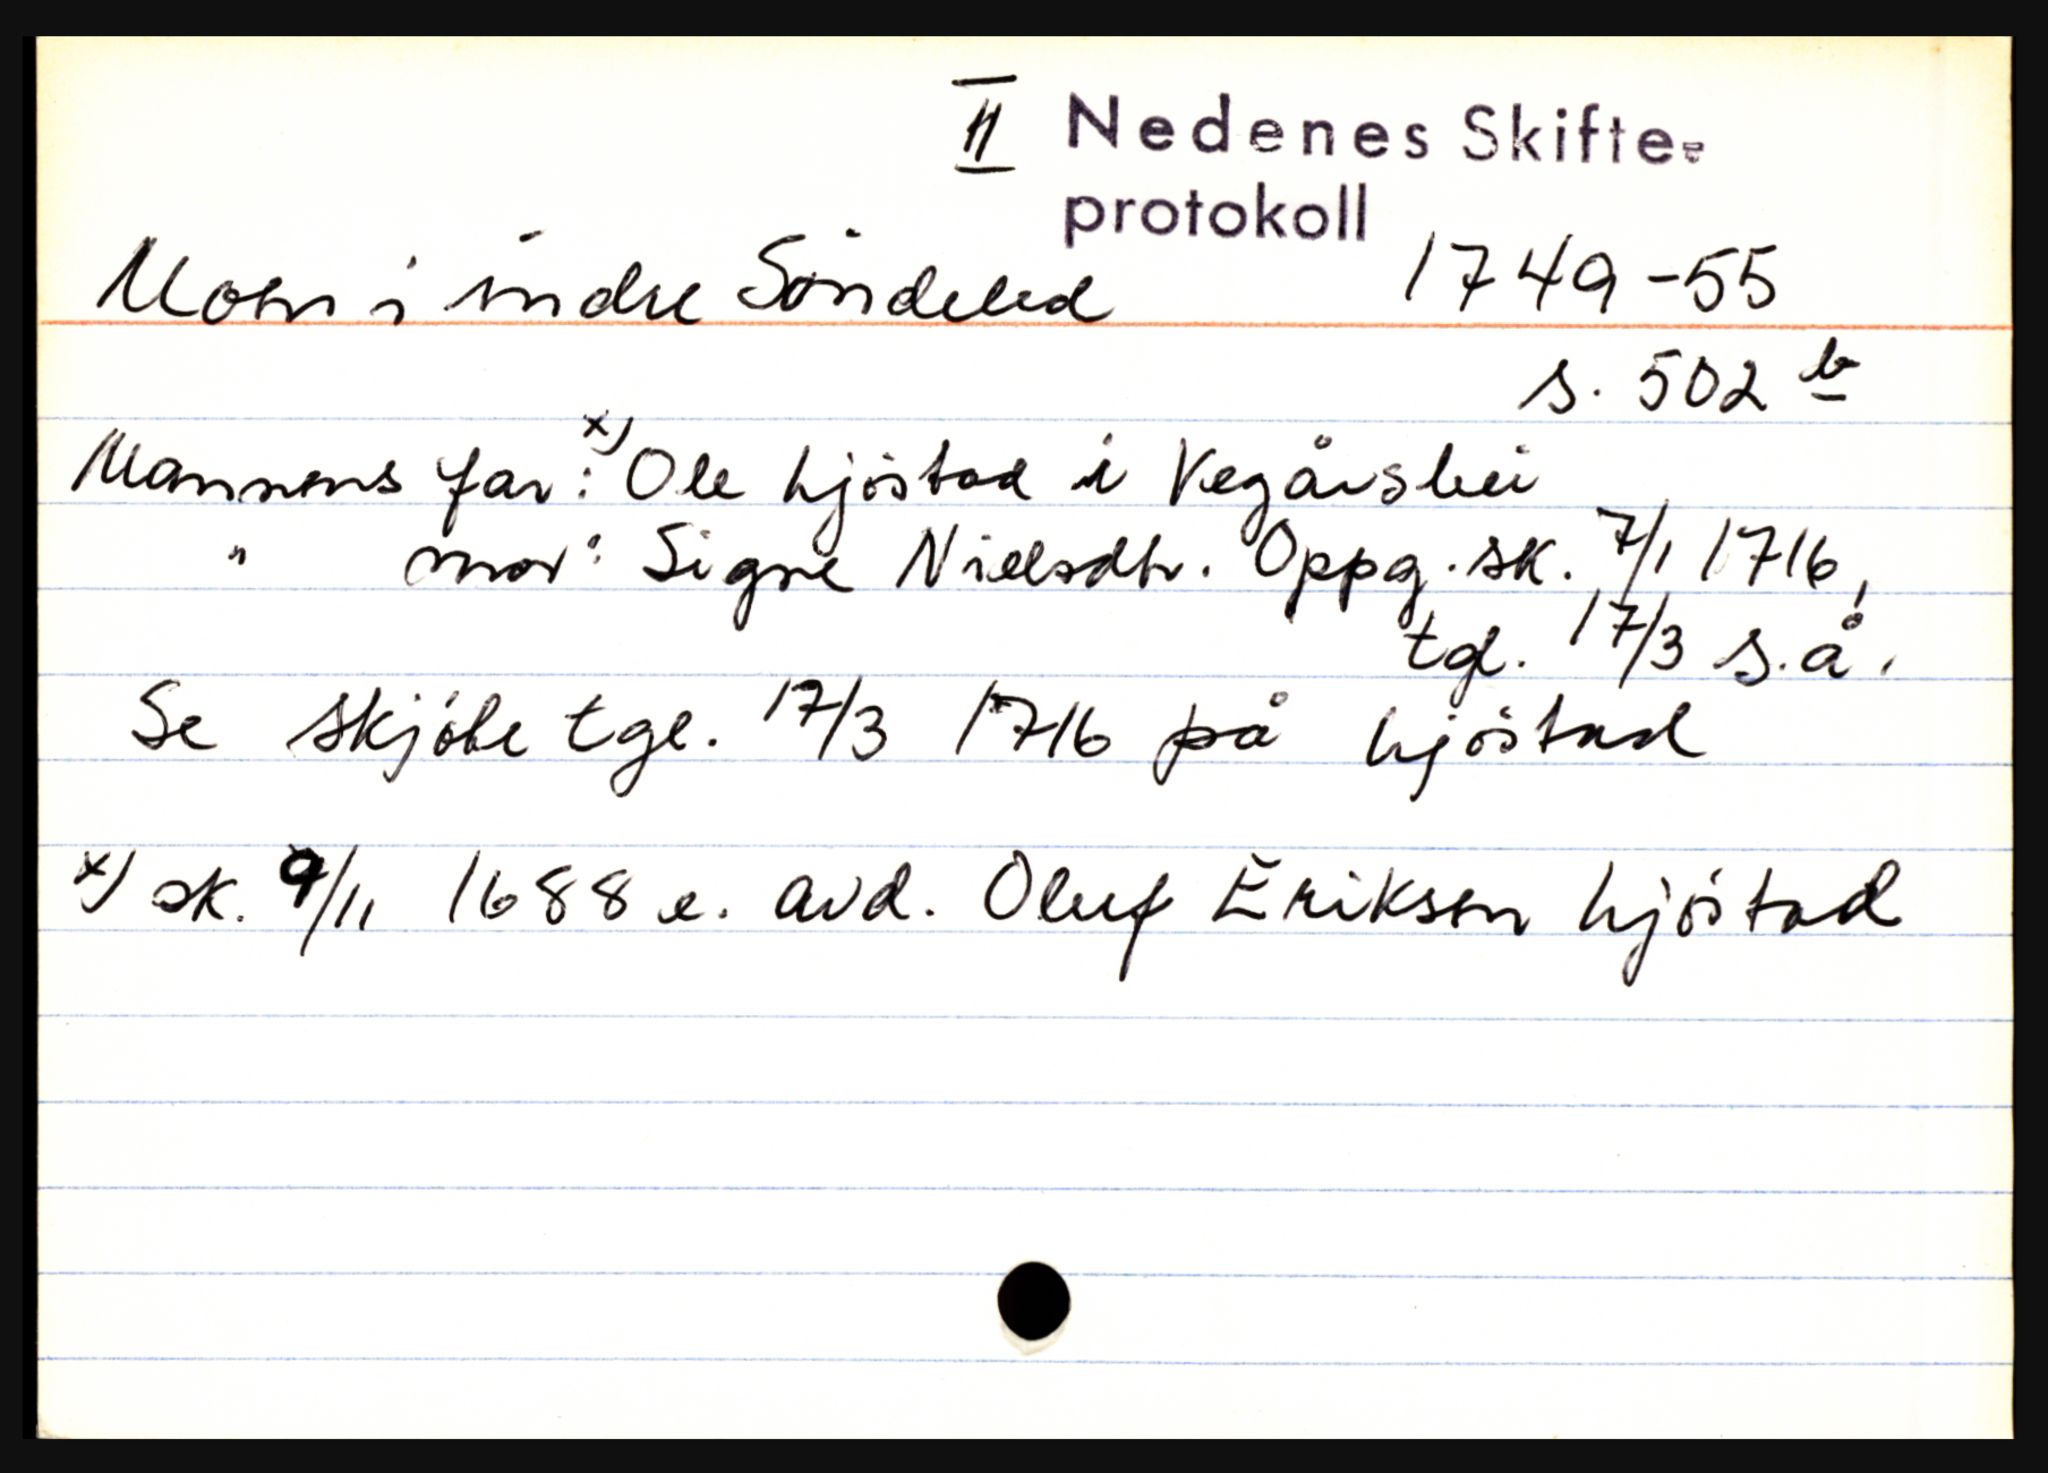 II Nedenes Skifte-
protokoll
Moen i indre Söndeled 1749-55
s. 502 b
Mannens far: x) Ole Ljöstad i Vegårshei
" mor: Signe Nielsdtr. Oppg. sk. 7/1 1716,
tgl. 17/3 s.å.
Se skjöte tgl. 17/3 1716 på Ljöstad
x) sk. 9/11 1688 e. avd. Oluf Eriksen Ljöstad